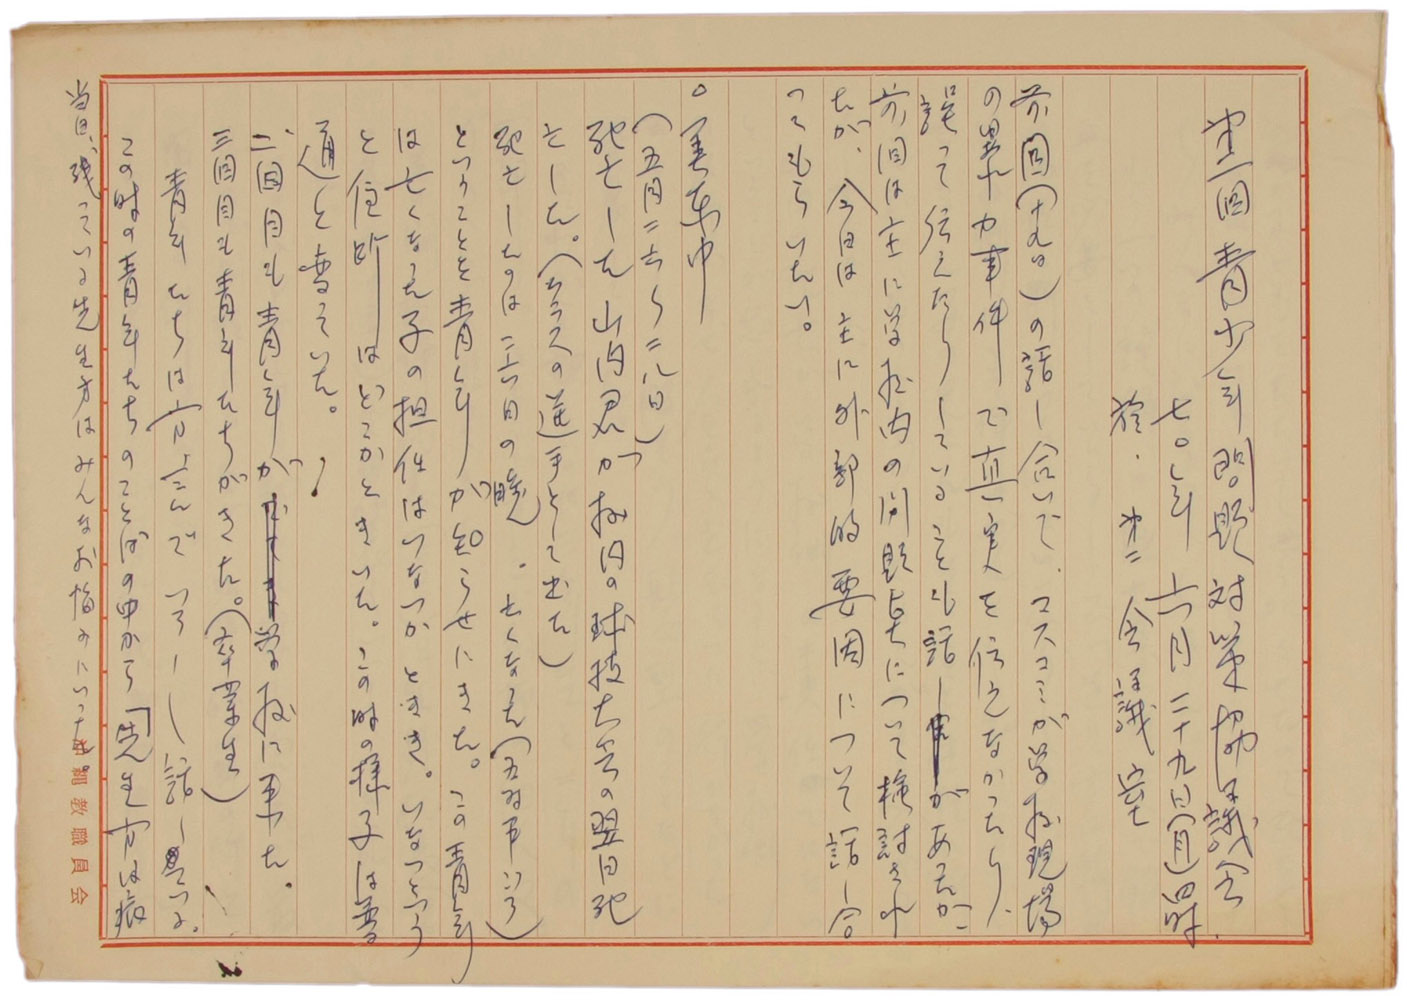 第三回青少年問題対策協議会
七〇年六月二十九日(月)四時
於・第二会議室
前回(十九日)の話し合いで、マスコミが学校現場
の暴力事件で真実を伝えなかったり、
誤って伝えたりしていることも話しがあったが、
前回は主に学校内の問題点について検討され
たが、今日は主に外部的要因について話し合
ってもらいたい。
○美東中
(五月二六〜二八日)
死亡した山内君が校内の球技大会の翌日死
亡した。(クラスの選手として出た)
死亡したのは二六日の暁。亡くなる(五時半ごろ)
ということを青年が知らせにきた。この青年
は亡くなった子の担任はいないかとききいないという
と住所はどこかときいた。この時の様子は普
通と変っていた。
二回目も青年が学校に来た。
三回目も青年たちがきた。(卒業生)
青年たちは でいろいろ話している。
この時の青年たちのことばの中から「先生方は
当日、残っている先生方はみんなお悔みにいった。
沖縄教職員会